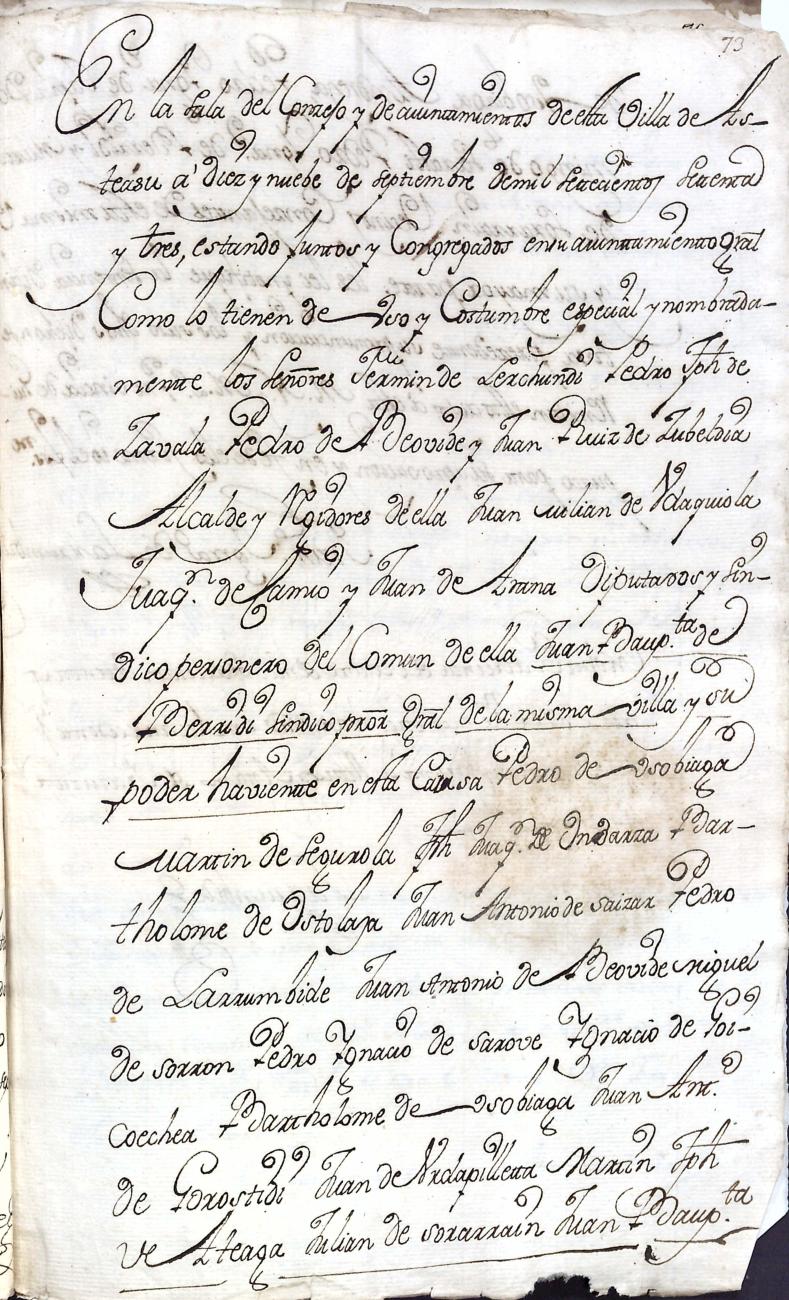 73
En la sala del Conzejo y de aiuntamientos de esta Villa de As-
teasu a' diez y nuebe de septiembre de mil setecientos setenta
y tres, estando Juntos y Congregados en su aiuntamiento Gral
Como lo tienen de Vso y Costumbre especial y nombrada-
mente los señores Fermin de Lerchundi Pedro Jph de
Zavala Pedro de Beovide y Juan Ruiz de Zubeldia
Alcalde y Rexidores de ella Juan Milian de Vdaquiola
Juaqn. de Lamio y Juan de Arana Diputados y sin-
dico personero del Comun de ella Juan Baup.ta de
Berridi sindico pror Gral de la misma villa y su
poder haviente en esta Causa Pedro de Vsobiaga
Martin de segurola Jph Juaq.n de Indarza Bar-
tholome de Ostolaza Juan Antonio de saizar Pedro
de Larrumbide Juan Antonio de Beovide Miguel
de sorron Pedro Ygnacio de sarove Ygnacio de Goi-
coechea Bartholome de Vsobiaga Juan Ant.o
de Gorostidi Juan de Vrdapilleta Martin Jph
de Ateaga Julian de sorarrain Juan Baup.ta